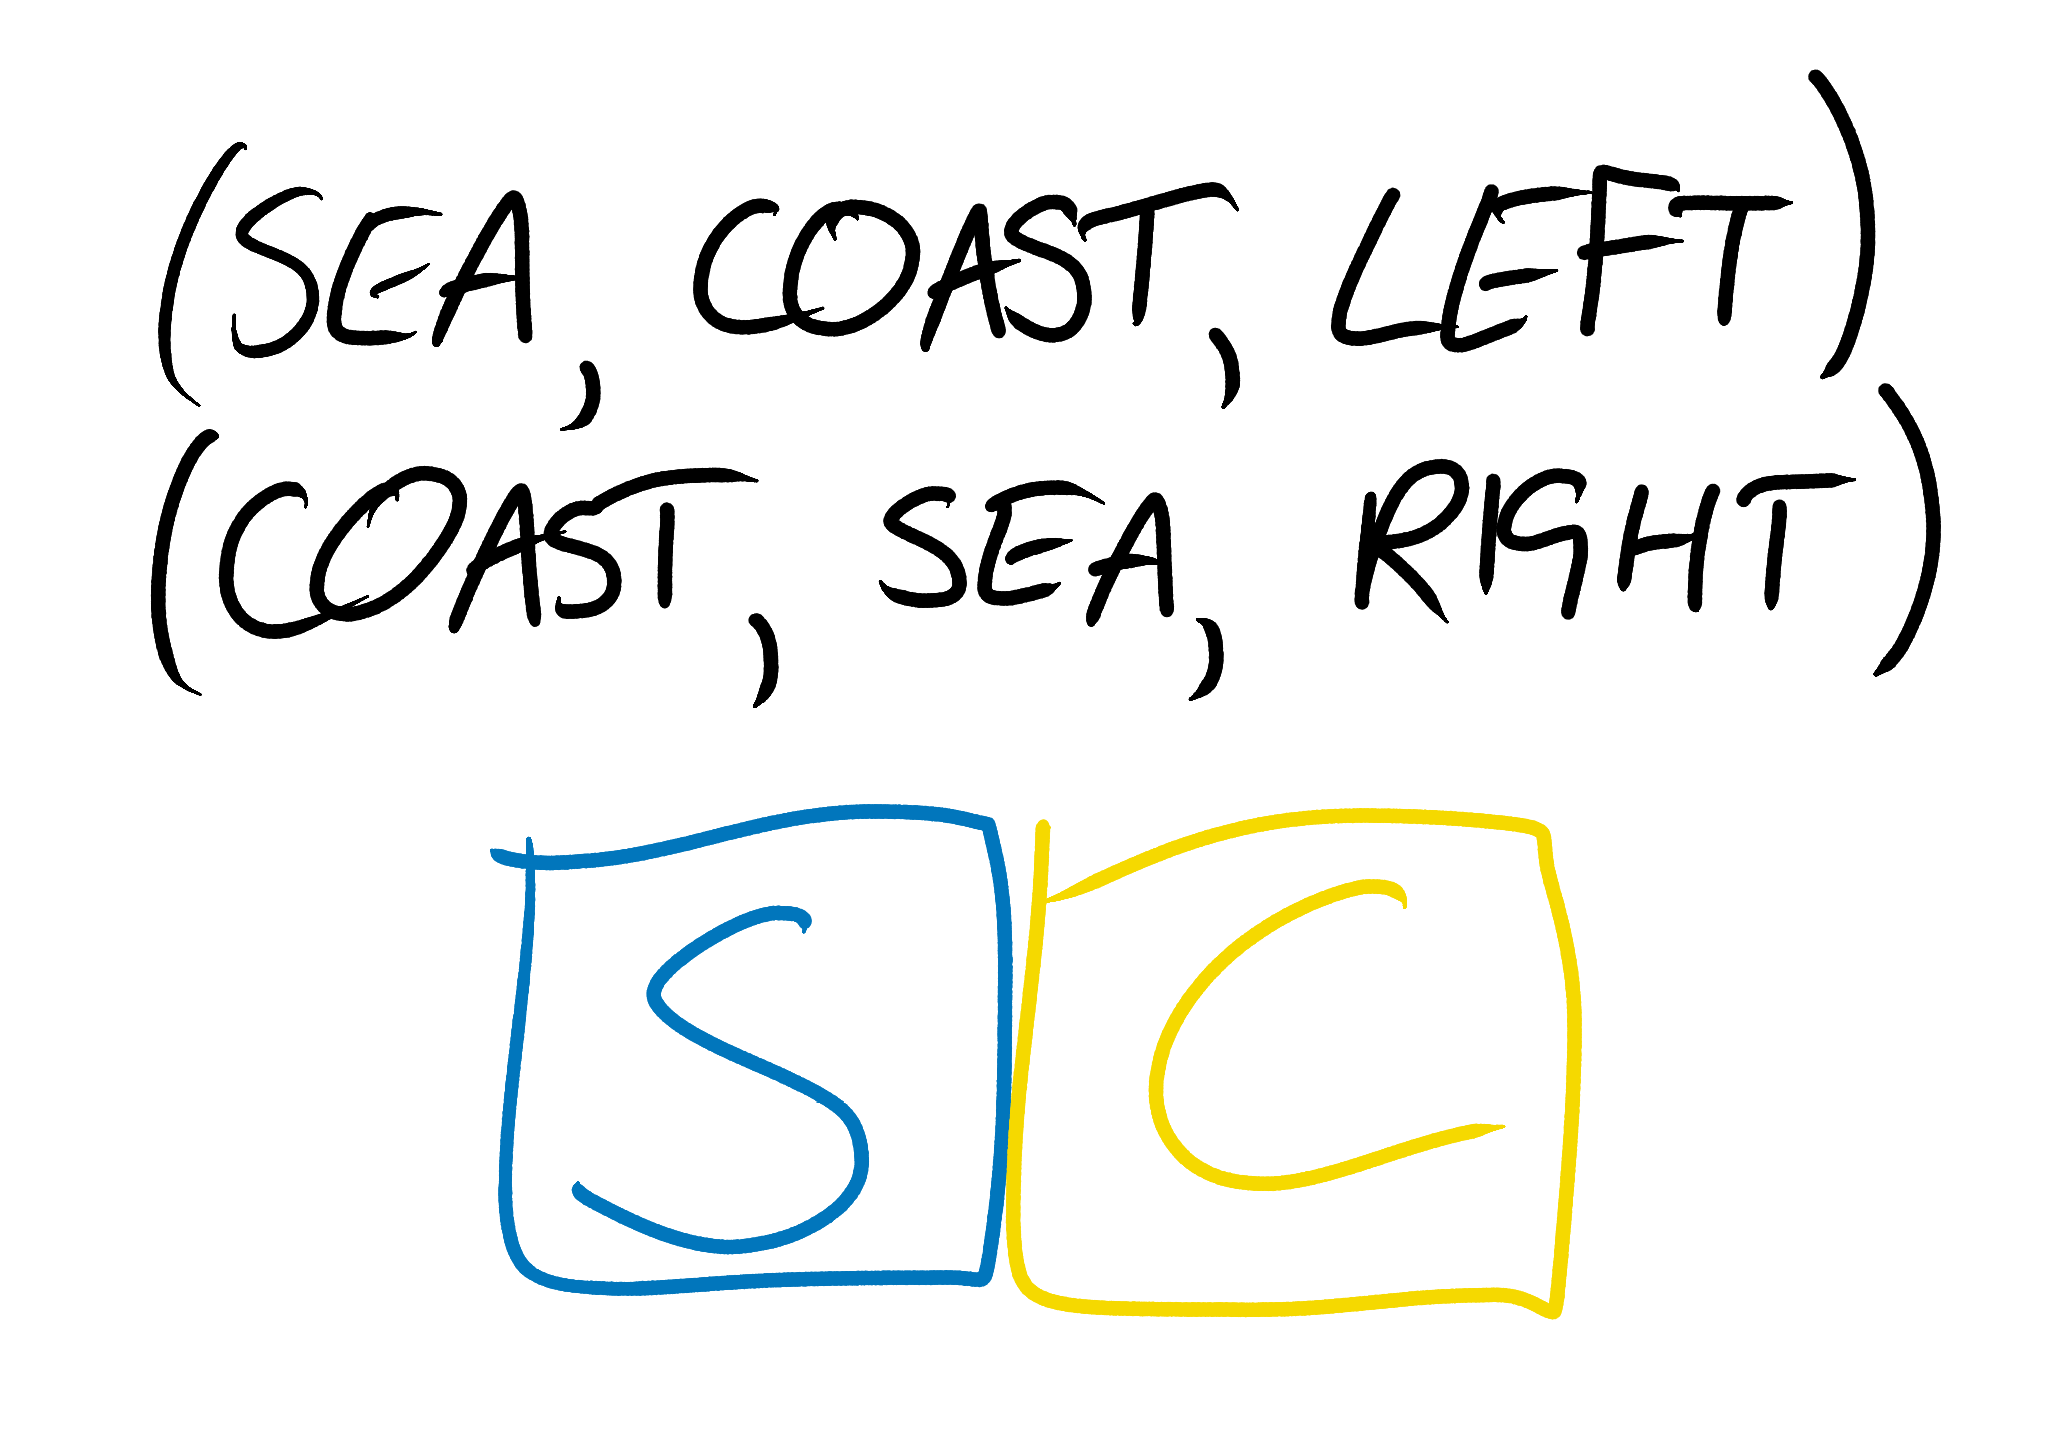 (SEA, COAST, LEFT)
(COAST, SEA, RIGHT)
S C